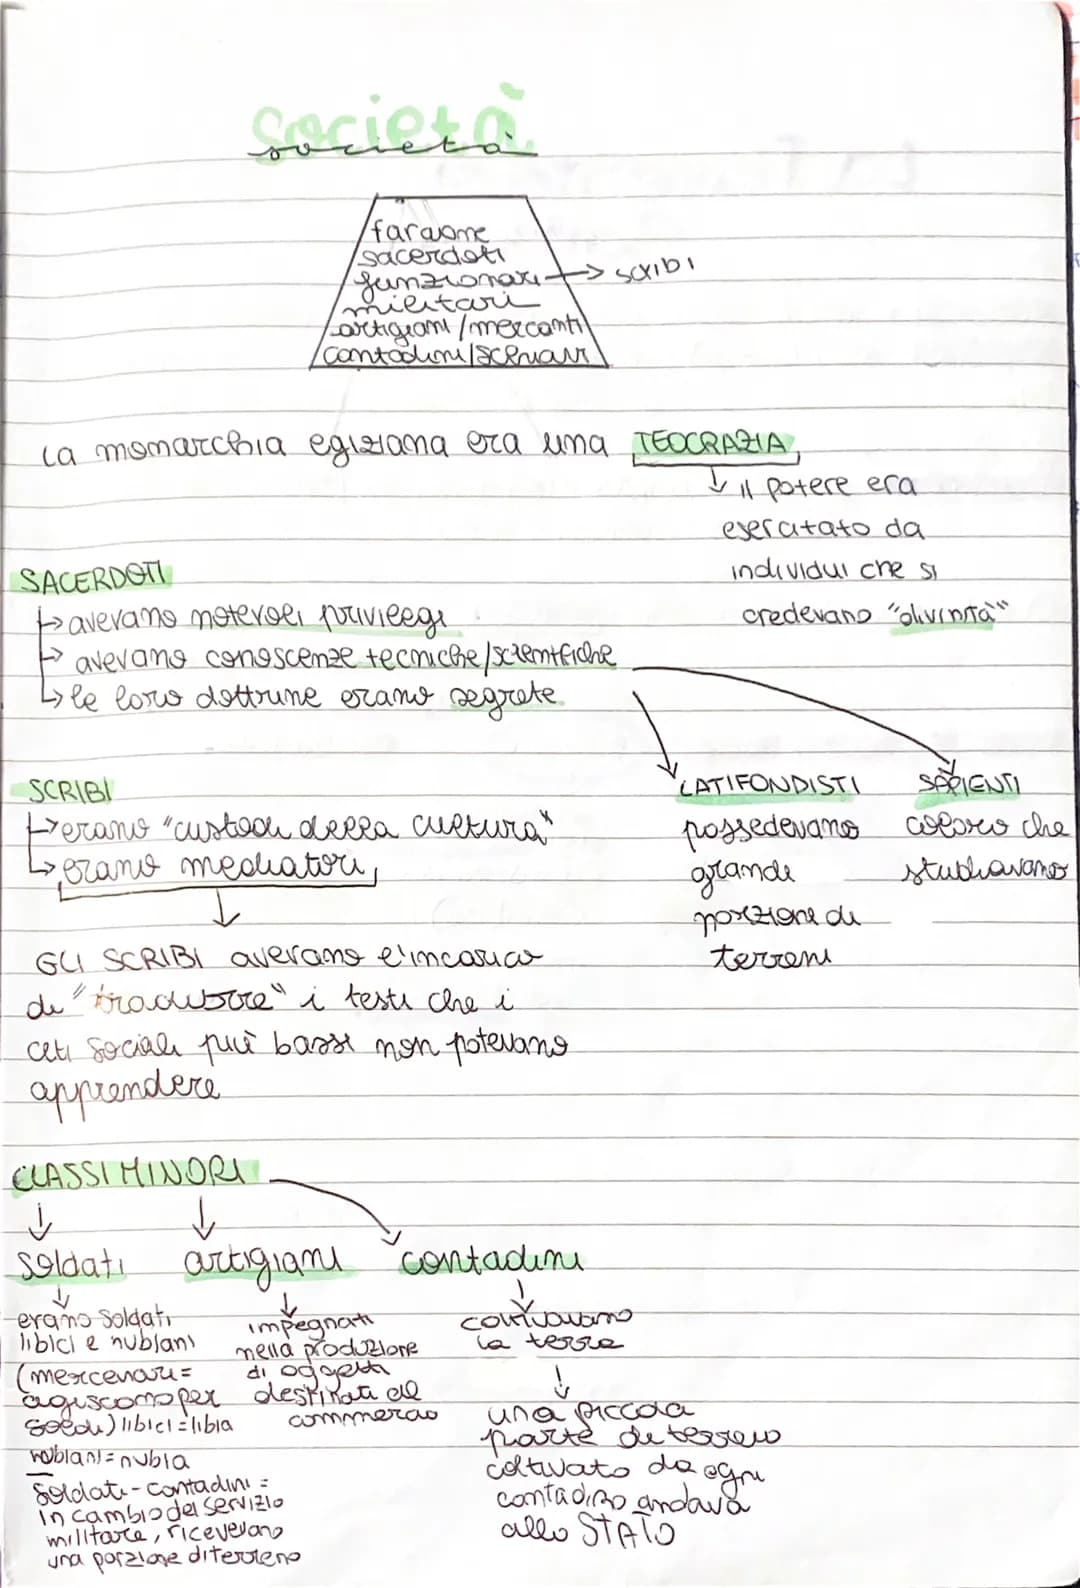 società
società
faraone
sacerdoti
funzionari → scribi
militari
artigiani/mercanti
contadini/schiavi
La monarchia egiziana era una TEOCRAZIA,
↓ il potere era
esercitato da
individui che si
credevano "divinità"
SACERDOTI
↳ avevano notevoli privilegi
↳ avevano conoscenze tecniche/scientifiche
↳ le loro dottrine erano segrete
LATIFONDISTI
possedevano
grande
porzione di
terreni
SAPIENTI
coloro che
studiavano
SCRIBI
↳ erano "custodi della cultura"
↳ erano mediatori,
↓
GLI SCRIBI avevano l'incarico
di "tradurre" i testi che i
ceti sociali più bassi non potevano
apprendere
CLASSI MINORI
soldati
↓
erano soldati
libici e nubiani
(mercenari=
agiscono per
soldi) libici=libia
nubiani=nubia
soldati-contadini=
in cambio del servizio
militare, ricevevano
una porzione di terreno
artigiani
↓
impegnati
nella produzione
di oggetti
destinati al
commercio
contadini
↓
coltivavano
la terra
↓
una piccola
parte di terreno
coltivato da ogni
contadino andava
allo STATO